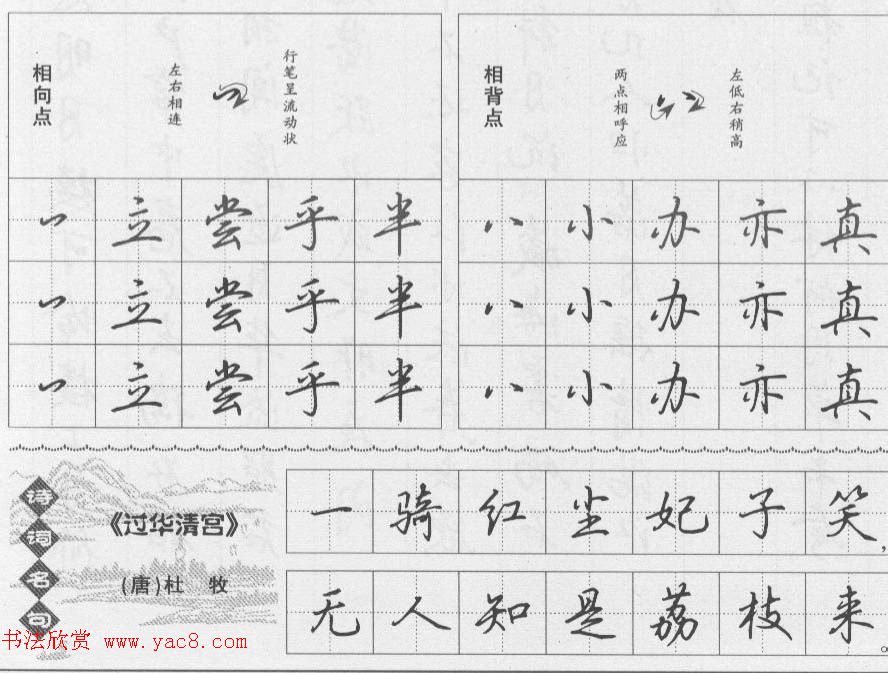 相向点
左右相连
行笔呈流动状
相背点
两点相呼应
左低右稍高
丷 立 尝 乎 半
丷 立 尝 乎 半
丷 立 尝 乎 半
八 小 办 亦 真
八 小 办 亦 真
八 小 办 亦 真
诗词名句
《过华清宫》
(唐)杜 牧
一骑红尘妃子笑,
无人知是荔枝来。
书法欣赏 www.yac8.com